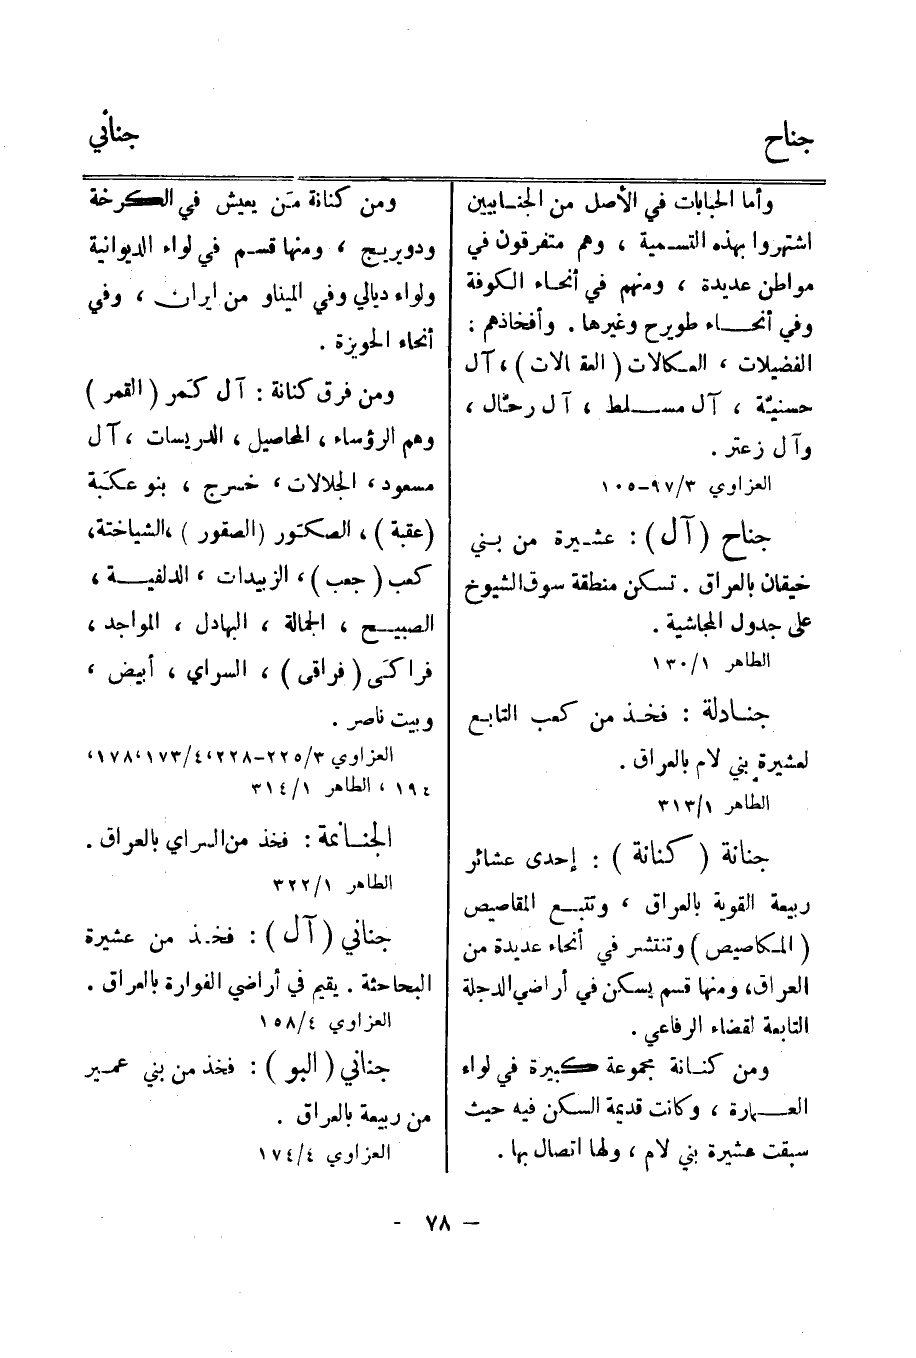 جناح
جناني
وأما الحبابات في الأصل من الجنابيين
اشتهروا بهذه التسمية ، وهم متفرقون في
مواطن عديدة ، ومنهم في أنحاء الكوفة
وفي أنحاء طويرج وغيرها . وأفخاذهم :
الفضيلات ، العكالات ( العقالات ) ، آل
حسنية ، آل مسلط ، آل رحال ،
وآل زعتر .
العزاوي ٣/ ٩٧-١٠٥
جناح ( آل ) : عشيرة من بني
خيقان بالعراق . تسكن منطقة سوق الشيوخ
على جدول المجاشية .
الطاهر ١/ ١٣٠
جنادلة : فخذ من كعب التابع
لعشيرة بني لام بالعراق .
الطاهر ١/ ٣١٣
جنانة ( كنانة ) : إحدى عشائر
ربيعة القوية بالعراق ، وتتبع المقاصيص
( المكاصيص ) وتنتشر في أنحاء عديدة من
العراق، ومنها قسم يسكن في أراضي الدجلة
التابعة لقضاء الرفاعي .
ومن كنانة مجموعة كبيرة في لواء
العمارة ، وكانت قديمة السكن فيه حيث
سبقت عشيرة بني لام ، ولها اتصال بها .
ومن كنانة من يعيش في الكرخة
ودويريج ، ومنها قسم في لواء الديوانية
ولواء ديالي وفي الميناو من ايران ، وفي
أنحاء الحويزة .
ومن فرق كنانة : آل كمر ( القمر )
وهم الرؤساء ، المحاصيل ، الدريسات ، آل
مسعود ، الجلالات ، خسرج ، بنو عكبة
( عقبة ) ، الصكور ( الصقور ) ، الشياختة،
كعب ( جعب ) ، الزبيدات ، الدلفية ،
الصبيح ، الحمالة ، البهادل ، المواجد ،
فراكى ( فراقى ) ، السراي ، أبيض ،
وبيت ناصر .
العزاوي ٣/ ٢٢٥-٢٢٨، ٤/ ١٧٣، ١٧٨،
١٩٤ ، الطاهر ١/ ٣١٤
الجنائمة : فخذ من السراي بالعراق .
الطاهر ١/ ٣٢٢
جناني ( آل ) : فخذ من عشيرة
البحاحثة . يقيم في أراضي الفوارة بالعراق .
العزاوي ٤/ ١٥٨
جناني ( البو ) : فخذ من بني عمير
من ربيعة بالعراق .
العزاوي ٤/ ١٧٤
– ٧٨ -